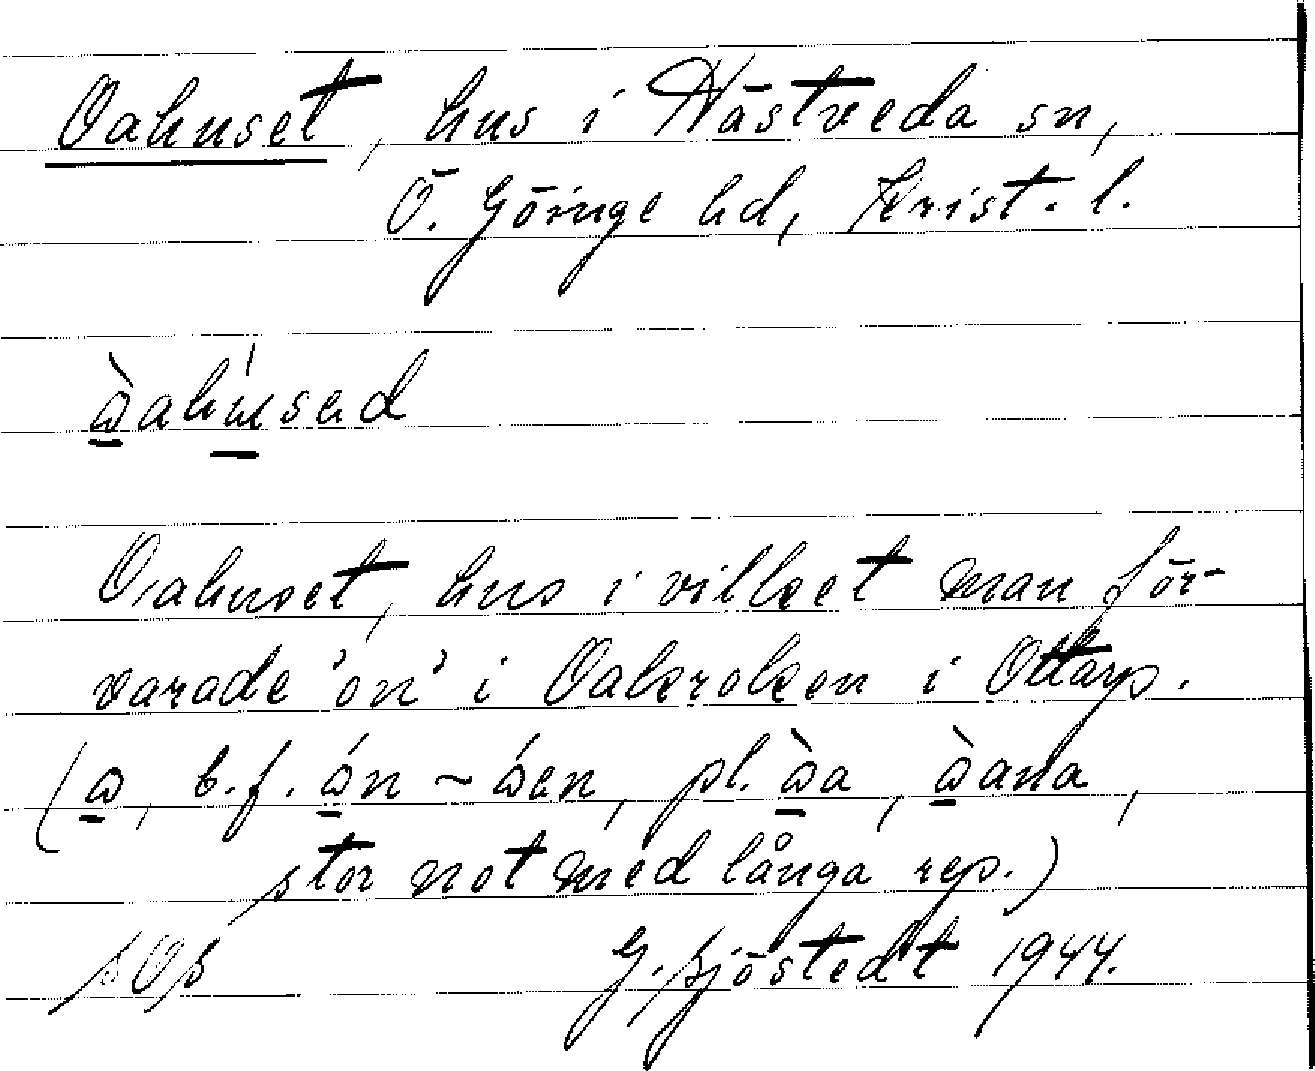 Oahuset, hus i Hästveda sn,
Ö. Göinge hd, Krist. l.
ꭃ̀ahúsəd
Oahuset, hus i vilket man för-
varade 'on' i Oakroken i Ottarp.
(ω, b.f. ώn ~ ώən, pl. ὼa, ὼana,
stor not med långa rep.)
SOS G. Sjöstedt 1944.